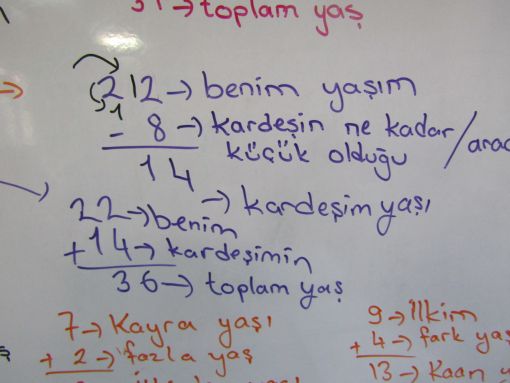 → toplam yaş
212 → benim yaşım
1
- 8 → kardeşin ne kadar /
küçük olduğu
14 → kardeşim yaşı
22 → benim
+ 14 → kardeşimin
36 → toplam yaş
7 → Kayra yaşı
+ 2 → fazla yaş
9 → İlkim
+ 4 → fark
13 → Kaan